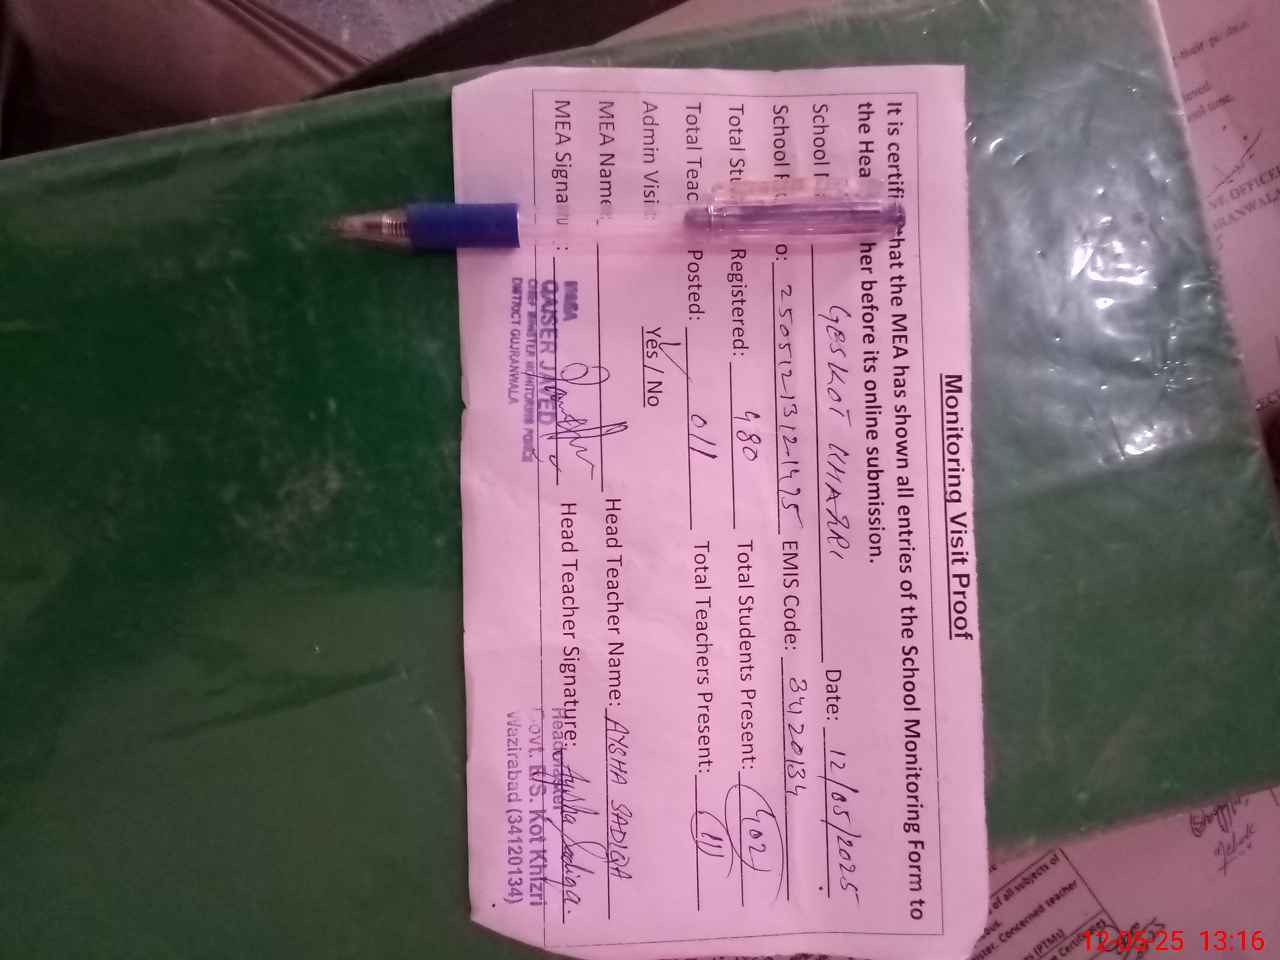 Monitoring Visit Proof
It is certifi that the MEA has shown all entries of the School Monitoring Form to
the Hea her before its online submission.
School GES KOT KHIZRI Date: 12/05/2025
School o: 250512-1312-1475 EMIS Code: 34120134
Total Stu Registered: 480 Total Students Present: 402
Total Teac Posted: 011 Total Teachers Present: 11
Admin Visit: Yes / No
MEA Name: Head Teacher Name: AYSHA SADIQA
MEA Signatu : Head Teacher Signature: Aysha Sadiqa.
MEA
QAISER JAVED
CHIEF MINISTER MONITORING FORCE
DISTRICT GUJRANWALA
Headmaster
Govt. E/S. Kot Khizri
Wazirabad (34120134)
of all subjects of
Concerned teacher
(PTMs)
OFFICER
RANWALA
12-05-25 13:16